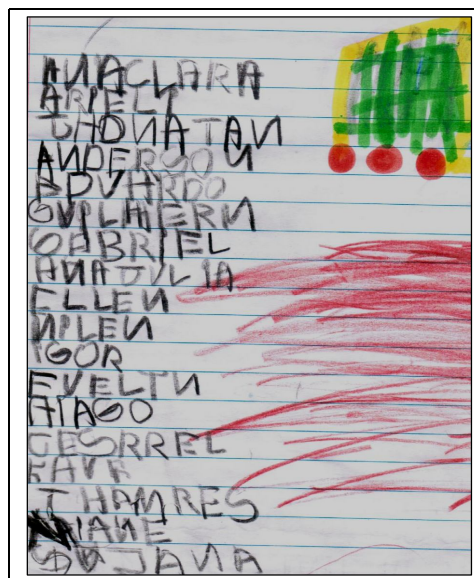 ANACLARA
ARIELI
JHONATAN
ANDERSON
EDVARDO
GUILHERM
GABRIEL
ANAJULIA
ELLEN
MILEN
IGOR
EVELIN
TIAGO
GESRREL
THAMRES
AIANE